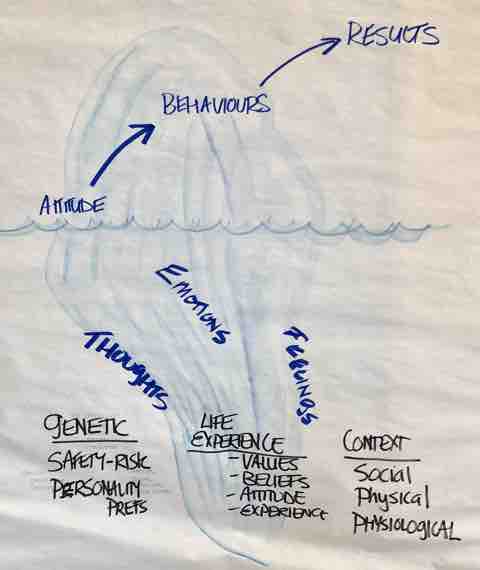 RESULTS
BEHAVIOURS
ATTITUDE
EMOTIONS
THOUGHTS
FEELINGS
GENETIC
SAFETY-RISK
PERSONALITY
PREFS
LIFE
EXPERIENCE
- VALUES
- BELIEFS
- ATTITUDE
- EXPERIENCE
CONTEXT
Social
Physical
PHYSIOLOGICAL